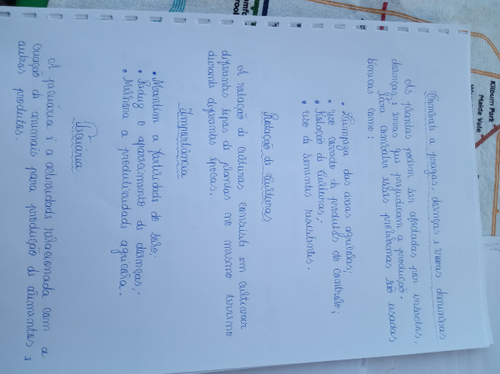 Combate a pragas, doenças e ervas daninhas
As plantas podem ser afectadas por insectos,
doenças e ervas que prejudicam a produção.
Para combater esses problemas são usadas
técnicas como:
• Limpeza das áreas agrícolas;
• Uso correcto de produtos de controlo;
• Rotação de culturas;
• Uso de sementes resistentes.
Rotação de culturas
A rotação de culturas consiste em cultivar
diferentes tipos de plantas no mesmo terreno
durante diferentes épocas.
Importância
• Mantém a fertilidade do solo;
• Reduz o aparecimento de doenças;
• Melhora a produtividade agrícola.
Pecuária
A pecuária é a actividade relacionada com a
criação de animais para produção de alimentos e
outros produtos.
Kilburn Park
Maida Vale